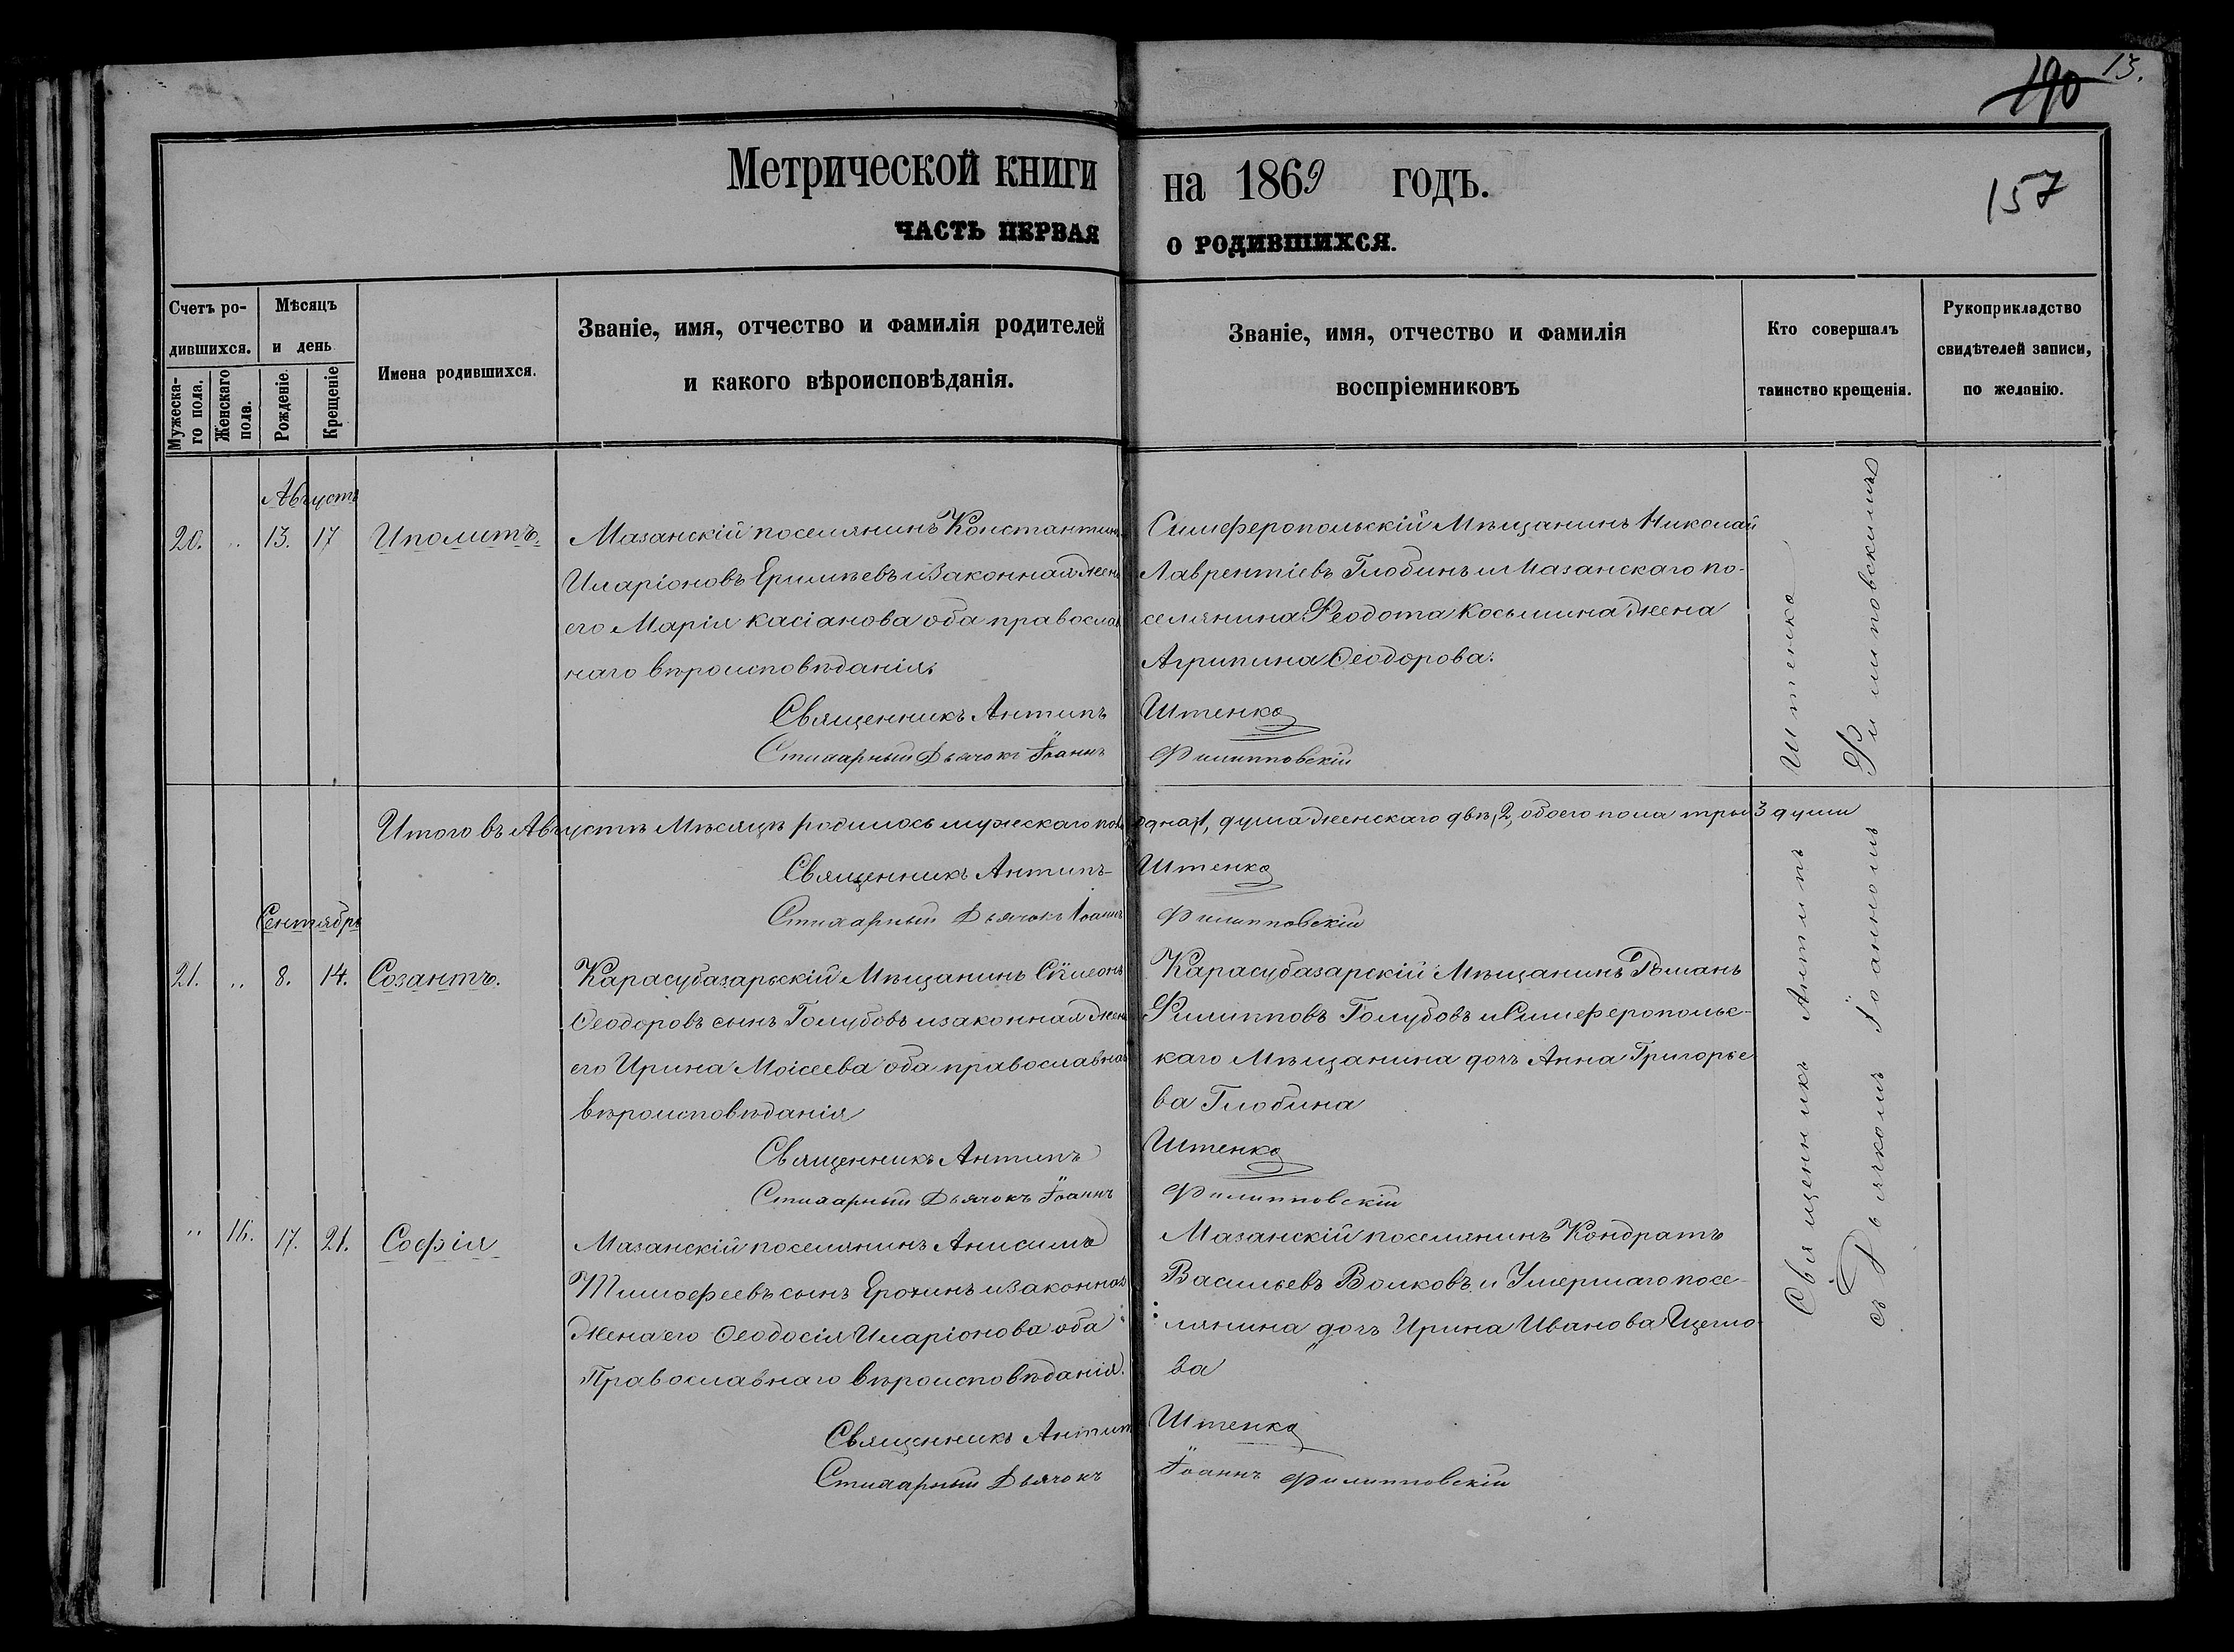 190 13.
Метрической книги на 1869 годъ.
157
ЧАСТЬ ПЕРВАЯ о родившихся.
Счетъ ро-
дившихся.
Мужеска-
го пола.
Женскаго
пола.
Мѣсяцъ
и день
Рожденіе.
Крещеніе
Имена родившихся.
Званіе, имя, отчество и фамилія родителей
и какого вѣроисповѣданія.
Званіе, имя, отчество и фамилія
воспріемниковъ
Кто совершалъ
таинство крещенія.
Рукоприкладство
свидѣтелей записи,
по желанію.
Августъ
20. „ 13. 17 Иполитъ.
Мазанскій поселянинъ Константинъ
Иларіоновъ Еримѣевъ и Законная жена
его Марія Касіанова оба православ
наго вѣроисповѣданія.
Священникъ Антипъ
Стихарный Дьячокъ Іоаннъ
Симферопольскій Мѣщанинъ Николай
Лаврентіевъ Глобинъ и Мазанскаго по-
селянина Ѳеодота Косьмина жена
Агрипина Ѳеодорова.
Штенко
Филипповскій
Итого въ Августѣ Мѣсяцѣ родилось мужескаго пола одна, 1, душа женскаго двѣ, 2, обоего пола три 3 души
Священникъ Антипъ Штенко
Стихарный Дьячокъ Іоаннъ Филипповскій
Сентябрь
21. „ 8. 14. Созантъ.
Карасубазарьскій Мѣщанинъ Сѵмеонъ
Ѳеодоровъ сынъ Голубовъ и законная жена
его Ирина Моісеева оба православна
вѣроисповѣданія
Священникъ Антипъ
Стихарный Дьячокъ Іоаннъ
Карасубазарскій Мѣщанинъ Романъ
Филипповъ Голубовъ и Симферопольс-
каго Мѣщанина дочь Анна Григорье
ва Глобина
Штенко
Филипповскій
„ 16. 17. 21. Софія
Мазанскій поселянинъ Анисимъ
Тимоѳеевъ сынъ Ерохинъ и Законная
Жена его Ѳеодосія Иларіонова оба
Православнаго вѣроисповѣданія.
Священникъ Антипъ
Стихарный Дьячокъ
Мазанскій поселянинъ Кондратъ
Васильевъ Волковъ и Умершаго посе-
лянина дочь Ирина Иванова Щегло
ва
Штенко
Іоаннъ Филипповскій
Священникъ Антипъ Штенко
съ Дьячкомъ Іоанномъ Филиповскимъ